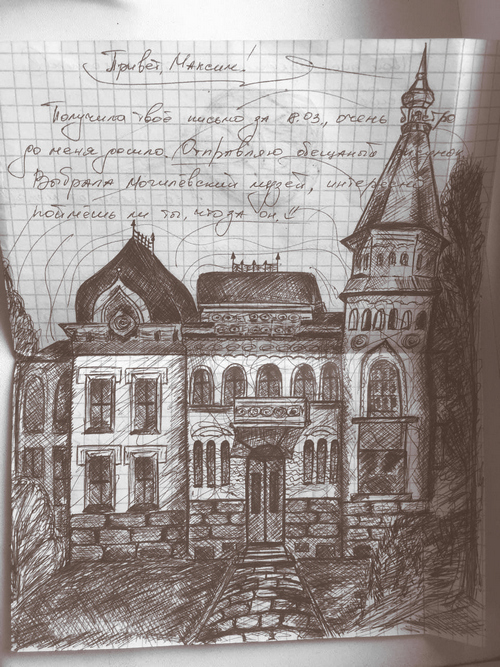 Привет, Максим!
Получила твоё письмо за 18.03., очень быстро
до меня дошло. Отправляю обещаный рисунок.
Выбрала могилёвский музей, интересно
поймёшь ли ты, что за он. !!